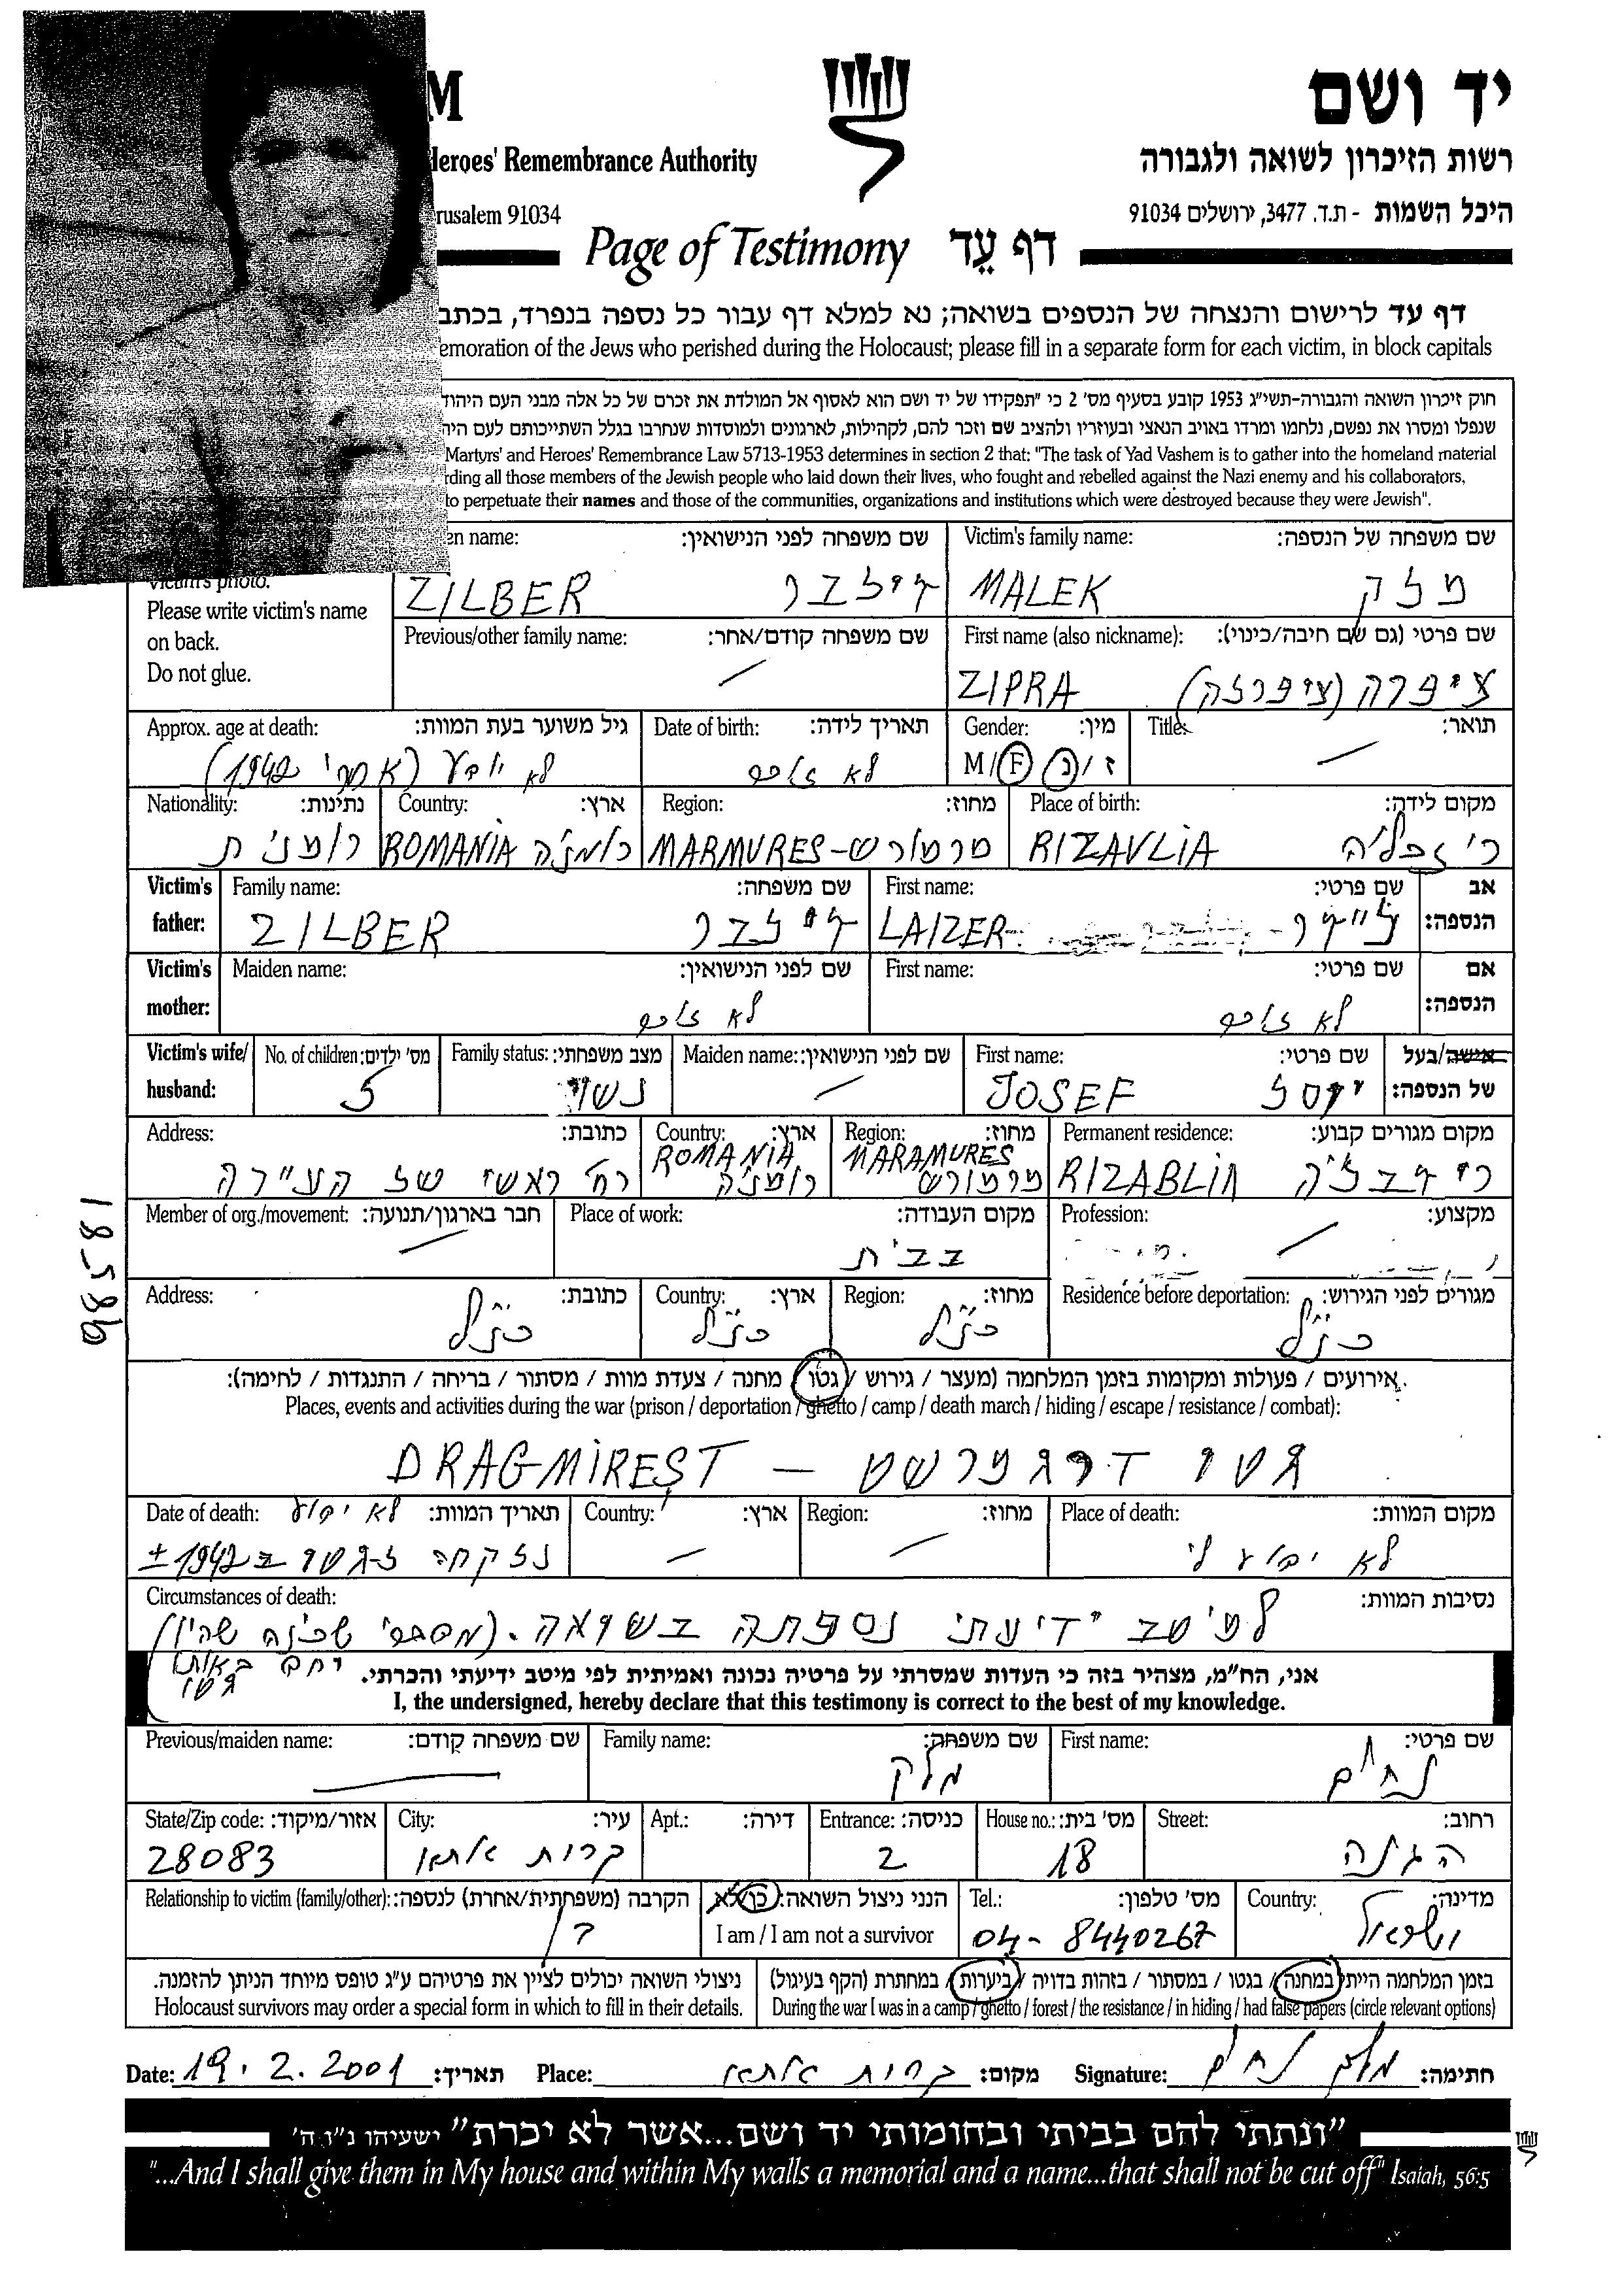 M
יד ושם
Heroes' Remembrance Authority
רשות הזיכרון לשואה ולגבורה
rusalem 91034
היכל השמות - ת.ד. 3477, ירושלים 91034
Page of Testimony דף עֵד
דף עד לרישום והנצחה של הנספים בשואה; נא למלא דף עבור כל נספה בנפרד, בכתב
emoration of the Jews who perished during the Holocaust; please fill in a separate form for each victim, in block capitals
חוק זיכרון השואה והגבורה-תשי"ג 1953 קובע בסעיף מס' 2 כי "תפקידו של יד ושם הוא לאסוף אל המולדת את זכרם של כל אלה מבני העם היהוד
שנפלו ומסרו את נפשם, נלחמו ומרדו באויב הנאצי ובעוזריו ולהציב שם וזכר להם, לקהילות, לארגונים ולמוסדות שנחרבו בגלל השתייכותם לעם היה
Martyrs' and Heroes' Remembrance Law 5713-1953 determines in section 2 that: "The task of Yad Vashem is to gather into the homeland material
rding all those members of the Jewish people who laid down their lives, who fought and rebelled against the Nazi enemy and his collaborators,
to perpetuate their names and those of the communities, organizations and institutions which were destroyed because they were Jewish".
Victim's photo.
Please write victim's name
on back.
Do not glue.
Victim's family name: שם משפחה של הנספה:
MALEK מלק
en name: שם משפחה לפני הנישואין:
ZILBER זילבר
First name (also nickname): שם פרטי (גם שם חיבה/כינוי):
ZIPRA ציפרה (ציפרלה)
Previous/other family name: שם משפחה קודם/אחר:
Title: תואר:
Gender: מין:
M / F ז / נ
Date of birth: תאריך לידה:
לא זוכר
Approx. age at death: גיל משוער בעת המוות:
לא יודע (אחרי 1942)
Place of birth: מקום לידה:
RIZAVLIA ריזבליה
Region: מחוז:
MARMURES - מרמורש
Country: ארץ:
ROMANIA רומניה
Nationality: נתינות:
רומנית
Victim's father: אב הנספה:
First name: שם פרטי:
LAIZER לייזר
Family name: שם משפחה:
ZILBER זילבר
Victim's mother: אם הנספה:
First name: שם פרטי:
לא זוכר
Maiden name: שם לפני הנישואין:
לא זוכר
Victim's wife/ husband: אישה/בעל של הנספה:
First name: שם פרטי:
JOSEF יוסל
Maiden name: שם לפני הנישואין:
Family status: מצב משפחתי:
נשוי
No. of children: מס' ילדים:
5
Permanent residence: מקום מגורים קבוע:
RIZABLIA ריזבליה
Region: מחוז:
MARAMURES מרמורש
Country: ארץ:
ROMANIA רומניה
Address: כתובת:
רח' ראשי של העיירה
Profession: מקצוע:
Place of work: מקום העבודה:
בבית
Member of org./movement: חבר בארגון/תנועה:
Residence before deportation: מגורים לפני הגירוש:
כנ"ל
Region: מחוז:
כנ"ל
Country: ארץ:
כנ"ל
Address: כתובת:
כנ"ל
אירועים / פעולות ומקומות בזמן המלחמה (מעצר / גירוש / גטו / מחנה / צעדת מוות / מסתור / בריחה / התנגדות / לחימה):
Places, events and activities during the war (prison / deportation / ghetto / camp / death march / hiding / escape / resistance / combat):
DRAGMIREST – גטו דרגמרשט
Place of death: מקום המוות:
לא ידוע לי
Region: מחוז:
Country: ארץ:
Date of death: תאריך המוות: לא ידוע
נלקחה לגטו ב 1942 ±
Circumstances of death: נסיבות המוות:
למיטב ידיעתי נספתה בשואה. (מספרי שכנה שהיו
יחד באותו
גטו
אני, הח"מ, מצהיר בזה כי העדות שמסרתי על פרטיה נכונה ואמיתית לפי מיטב ידיעתי והכרתי.
I, the undersigned, hereby declare that this testimony is correct to the best of my knowledge.
First name: שם פרטי:
נחום
Family name: שם משפחה:
מלק
Previous/maiden name: שם משפחה קודם:
Street: רחוב:
הגנה
House no.: מס' בית:
18
Entrance: כניסה:
2
Apt.: דירה:
City: עיר:
קרית אתא
State/Zip code: אזור/מיקוד:
28083
Country: מדינה:
ישראל
Tel.: מס' טלפון:
04-8440267
הנני ניצול השואה: כן/לא
I am / I am not a survivor
Relationship to victim (family/other): הקרבה (משפחתית/אחרת) לנספה:
בזמן המלחמה הייתי במחנה / בגטו / במסתור / בזהות בדויה / ביערות / במחתרת (הקף בעיגול)
During the war I was in a camp / ghetto / forest / the resistance / in hiding / had false papers (circle relevant options)
ניצולי השואה יכולים לציין את פרטיהם ע"ג טופס מיוחד הניתן להזמנה.
Holocaust survivors may order a special form in which to fill in their details.
Date: 19.2.2001 תאריך: Place: קרית אתא מקום: Signature: מלק נחום חתימה:
"ונתתי להם בביתי ובחומותי יד ושם...אשר לא יכרת" ישעיהו נ"ו ה'
"...And I shall give them in My house and within My walls a memorial and a name...that shall not be cut off" Isaiah, 56:5